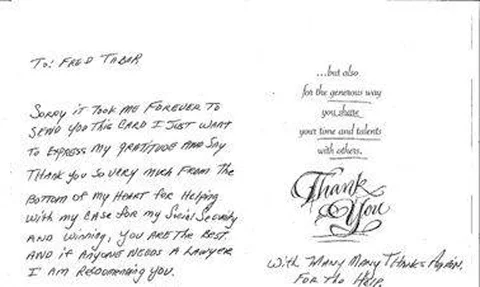 To: FRED TABAR
SORRY it took ME FOREVER TO
SEND YOU THIS CARD I JUST WANT
TO EXPRESS MY GRATITUDE AND SAY
THANK YOU SO VERY MUCH FROM THE
BOTTOM OF MY HEART FOR HELPING
WITH MY CASE FOR MY Social Security
AND WINNING, YOU ARE THE BEST
AND IF ANYONE NEEDS A LAWYER
I AM RECOMENDING YOU.
...but also
for the generous way
you share
your time and talents
with others.
Thank
You
With MANY MANY THANKS AGAIN.
FOR THE HELP.